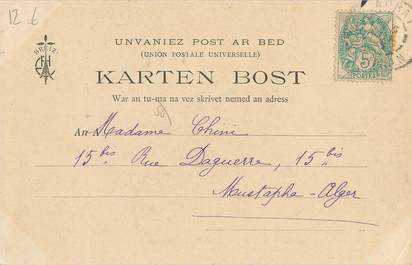 12 €
BREIZ
UNVANIEZ POST AR BED
(UNION POSTALE UNIVERSELLE)
KARTEN BOST
War an tu-ma na vez skrivet nemed an adress
An
Madame Chini
15 bis Rue Daguerre, 15 bis
Mustapha-Alger
5
POSTES